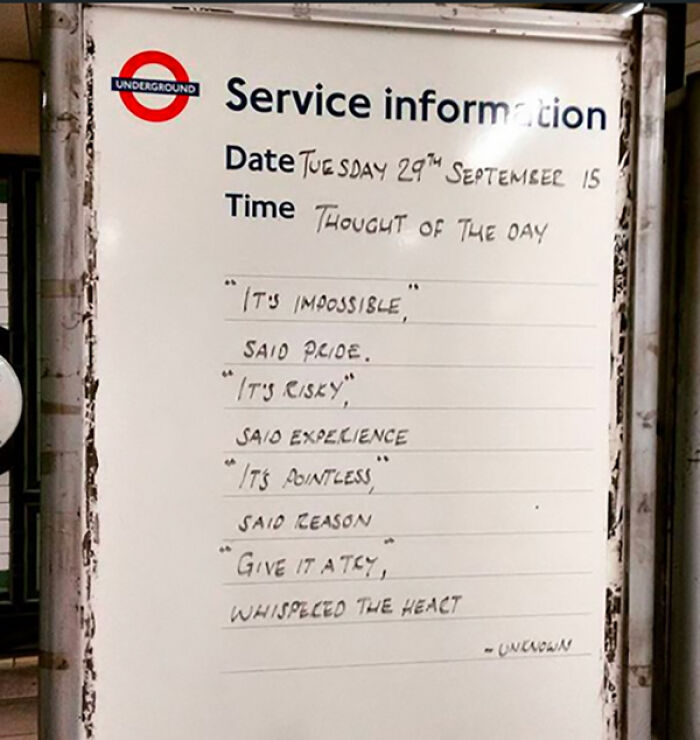 UNDERGROUND
Service information
Date TUESDAY 29TH SEPTEMBER 15
Time THOUGHT OF THE DAY
"IT'S IMPOSSIBLE,"
SAID PRIDE.
"IT'S RISKY",
SAID EXPERIENCE
"IT'S POINTLESS,"
SAID REASON
"GIVE IT A TRY,"
WHISPERED THE HEART
~ UNKNOWN